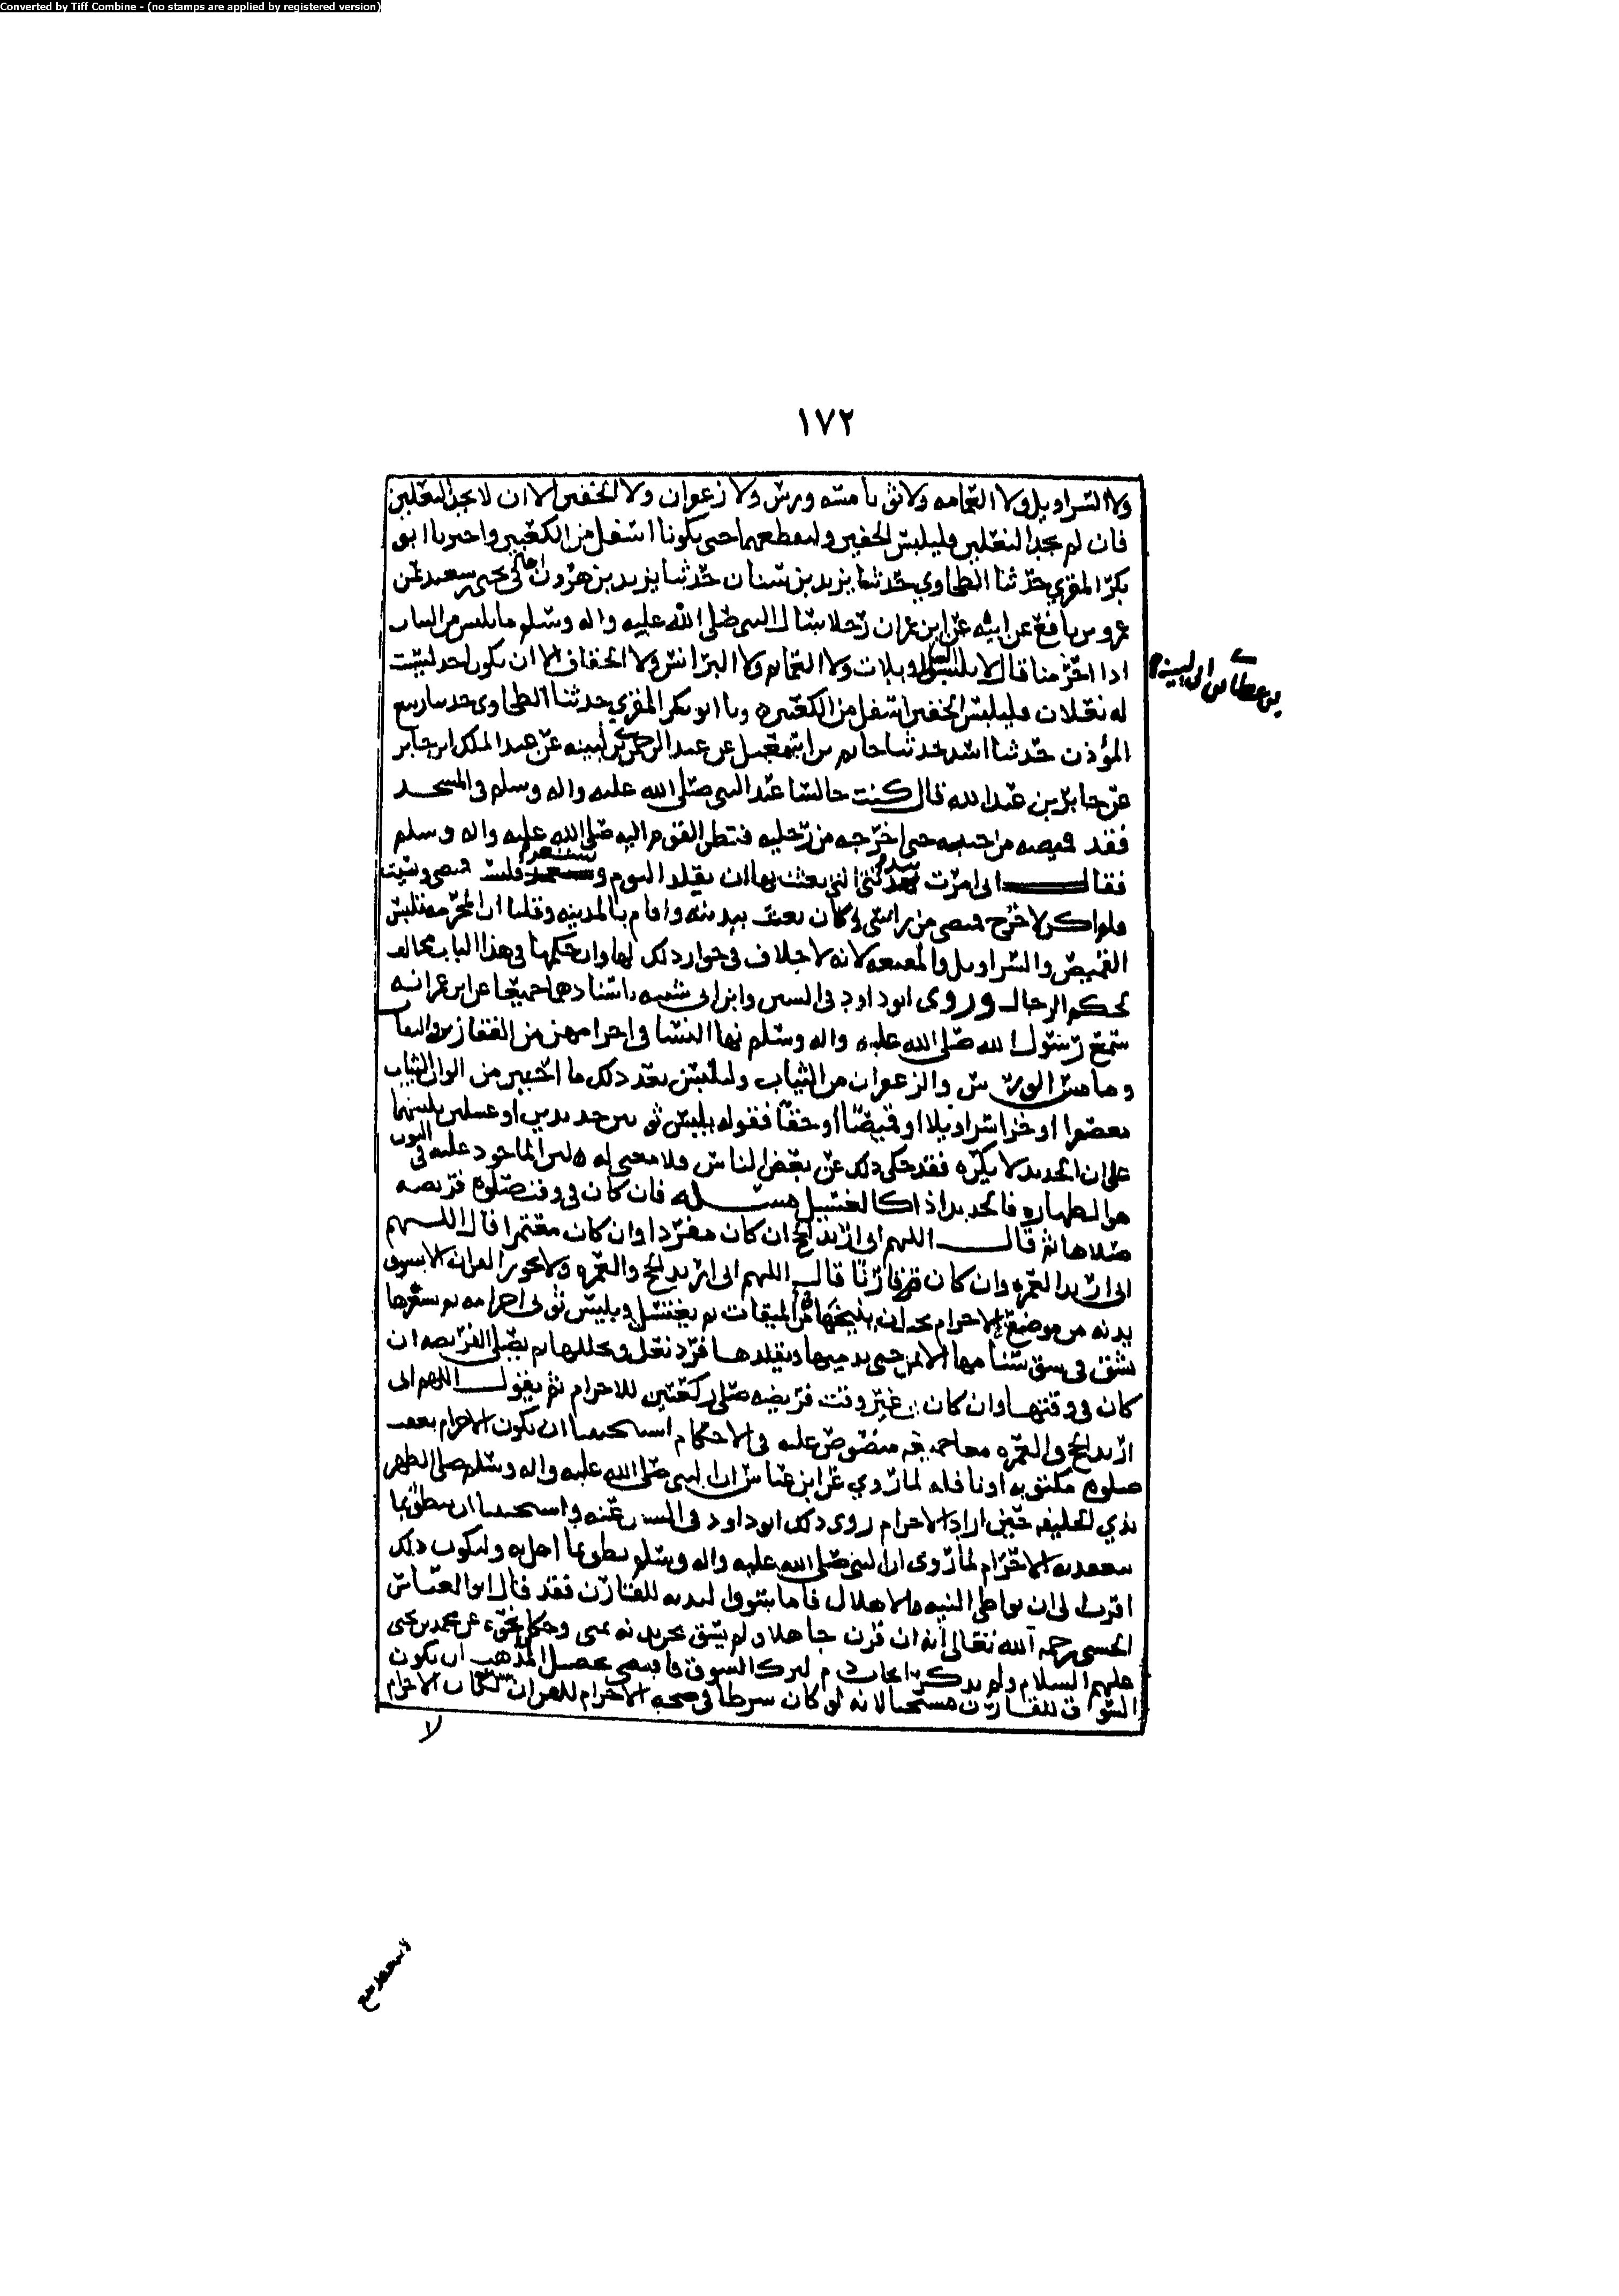 Converted by Tiff Combine - (no stamps are applied by registered version)
١٧٢
ولا السراويل ولا العمامه ولا ثوبا مسه ورس ولا زعفران ولا الخفين الا ان لا يجد النعلين
فان لم يجد النعلين فليلبس الخفين وليقطعهما حتى يكونا اسفل من الكعبين واخبرنا ابو
بكر المقري حدثنا الطحاوي حدثنا يزيد بن سنان حدثنا يزيد بن هرون يحيى بن سعيد عن
عمر بن نافع عن ابيه عن ابن عمر ان رجلا سال النبي صلى الله عليه واله وسلم ما نلبس من الثياب
اذا احرمنا قال لا تلبسوا السراويلات ولا العمايم ولا البرانس ولا الخفاف الا ان يكون احد ليست
له نعلان فليلبس الخفين اسفل من الكعبين ونا ابو بكر المقري حدثنا الطحاوي حدثنا ربيع
المؤذن حدثنا اسد حدثنا حاتم بن اسمعيل عن عبد الرحمن بن لبيبه عن عبد الملك ابن جابر
بن عطا بن ابي لبيبه
عن جابر بن عبد الله قال كنت جالسا عند النبي صلى الله عليه واله وسلم في المسجد
فقد قميصه من جيبه حتى اخرجه من رجليه فنظر القوم اليه صلى الله عليه واله وسلم
فقال اني امرت ببدني التي بعثت بها ان يقلد اليوم و فلبست قميصي ونسيت
فلم اكن لاخرج قميصي من راسي وكان بعث ببدنه واقام بالمدينه وقلنا ان المحرمه تلبس
القميص والسراويل والمقنعه لانه لا خلاف في جواز ذلك لها وان حكمها في هذا الباب مخالف
لحكم الرجال وروى ابو داود في السنن وابن ابي شيبه باسنادهما جميعا عن ابن عمر انه
سمع رسول الله صلى الله عليه واله وسلم نها النسا في احرامهن من القفازين والنقاب
وما مس الورس والزعفران من الثياب ولتلبس بعد ذلك ما احبت من الوان الثياب
معصفرا او خزا او سراويلا او قميصا او خفا فقوله يلبس ثوبين جديدين او غسيلين يلبسهما
على ان الجديد لا يكره فقد حكي ذلك عن بعض الناس ولا معنى له لان الماخوذ عليه في الثوب
هو الطهاره فالجديد اذا كالغسيل مسئله فان كان في وقت صلوه فريضه
صلاها ثم قال اللهم اني اريد الحج ان كان مفردا وان كان معتمرا قال اللهم
اني اريد العمره وان كان قارنا قال اللهم اني اريد الحج والعمره ولا يجوز القران الا بسوق
بدنه من موضع الاحرام ينيخها الميقات ثم يغتسل ويلبس ثوبي احرامه ثم يشعرها
بشق في شق سنامها الايمن حتى يدميها ويقلدها فرد نعل ويجللها ثم يصلي الفريضه ان
كان في وقتها وان كان غير وقت فريضه صلى ركعتين للاحرام ثم يقول اللهم اني
اريد الحج والعمره معا جميعه منصوص عليه في الاحكام استحببنا ان يكون الاحرام بعقب
صلوه مكتوبه او نافله لما روي عن ابن عباس ان النبي صلى الله عليه واله وسلم صلى الظهر
بذي الحليفه حين اراد الاحرام روى ذلك ابو داود في السنن عنه واستحببنا ان ينطق بما
يعقد به الاحرام لما روى ان النبي صلى الله عليه واله وسلم نطق بما اهل به وليكون ذلك
اقرب الى ان يواطي النيه والاهلال فاما سوق البدنه للقارن فقد قال ابو العباس
الحسني رحمه الله تعالى انه ان قرن جاهلا ولم يسق بحر بدنه بمنى وحكى نحوه عن محمد بن يحيى
عليهم السلام ولم يذكر ايجاب دم لترك السوق فاقتضى تحصيل المذهب ان يكون
السوق للقارن مستحبا لانه لو كان شرطا في صحه الاحرام للقران الاحرام
لا